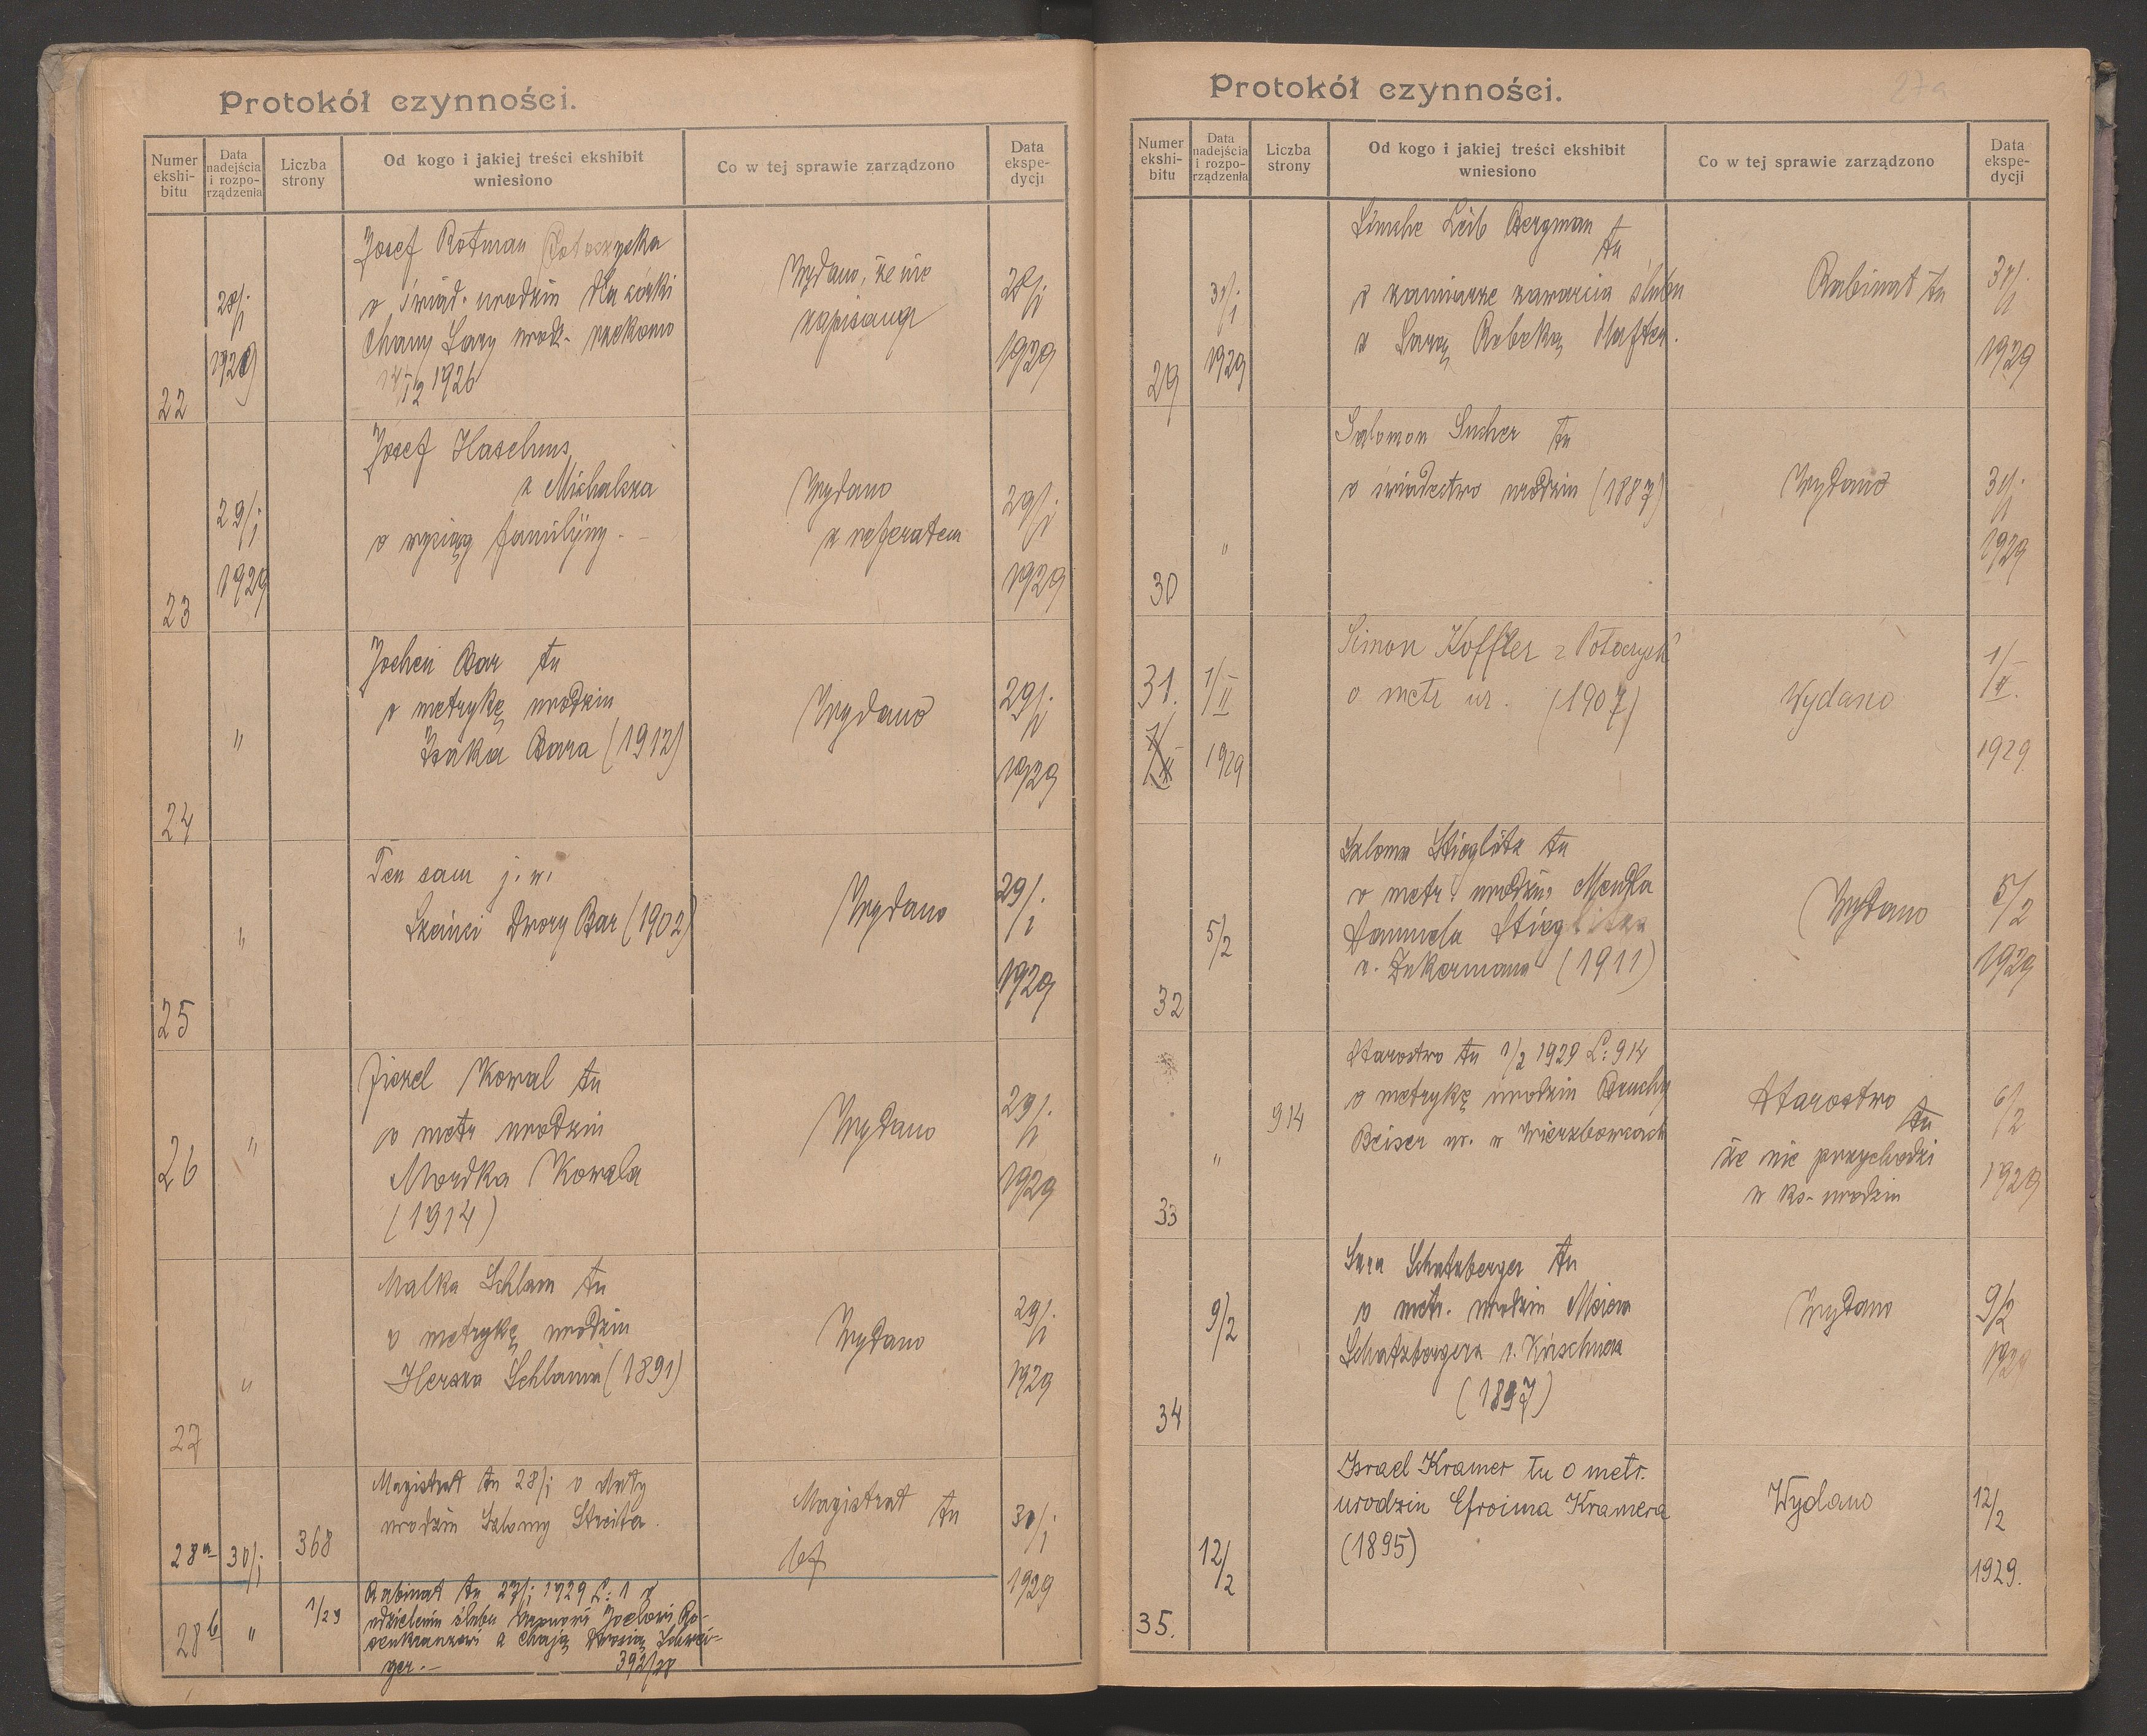 Protokół czynności.
Numer ekshi-bitu
Data nadejścia i rozpo-rządzenia
Liczba strony
Od kogo i jakiej treści ekshibit wniesiono
Co w tej sprawie zarządzono
Data ekspe-dycji
22
28/I 1929
Josef Rotman
o świad. urodzin dla córki
Chany Sary urodz. rzekomo
1926
Wydano, że nie
zapisana
28/I 1929
23
29/I 1929
Josef
z Michalcza
o wyciąg familijny.
Wydano
z referatem
29/I 1929
24
"
Bar tu
o metrykę urodzin
Izaka Bara (1912)
Wydano
29/I 1929
25
"
Ten sam j. w.
Dwory Bar (1902)
Wydano
29/I 1929
26
"
Kowal tu
o metr urodzin
Mordka Kowala
(1914)
Wydano
29/I 1929
27
"
Malka Schlam tu
o metrykę urodzin
Hersza Schlama (1891)
Wydano
29/I 1929
28a
30/I
368
Magistrat tu 28/I o daty
urodzin Szlomy Streita.
Magistrat tu
30/I 1929
28b
"
1/29
Rabinat tu 27/I 1929 L: 1 o
udzieleniu ślubu Joelowi Ro-
senkranzowi z Chają Schwei-
ger.–
Protokół czynności.
27a
Numer ekshi-bitu
Data nadejścia i rozpo-rządzenia
Liczba strony
Od kogo i jakiej treści ekshibit wniesiono
Co w tej sprawie zarządzono
Data ekspe-dycji
29
31/I 1929
Simche Leib Bergman tu
o zamiarze zawarcia ślubu
z Sarą Rebeką Hafter.
Rabinat tu
31/I 1929
30
"
Salomon Sucher tu
o świadectwo urodzin (1887)
Wydano
31/I 1929
31.
1/II 1929
Simon Koffler z Potoczysk
o metr ur. (1907)
Wydano
1/II. 1929
32
5/2
Szloma Stieglitz tu
o metr. urodzin Mendla
Samuela Stieglitza
v. Zukermana (1911)
Wydano
5/2 1929
33
"
914
Starostwo tu 1/2 1929 L: 914
o metrykę urodzin Bruchy
Beiser ur. w Wierzbowcach
Starostwo tu
że nie przychodzi
w ks. urodzin
6/2 1929
34
9/2
Sara Schatzberger tu
o metr. urodzin Mojera
Schatzbergera v. Kirschnera
(1897)
Wydano
9/2 1929
35.
12/2
Israel Kramer tu o metr.
urodzin Efroima Kramera
(1895)
Wydano
12/2 1929.